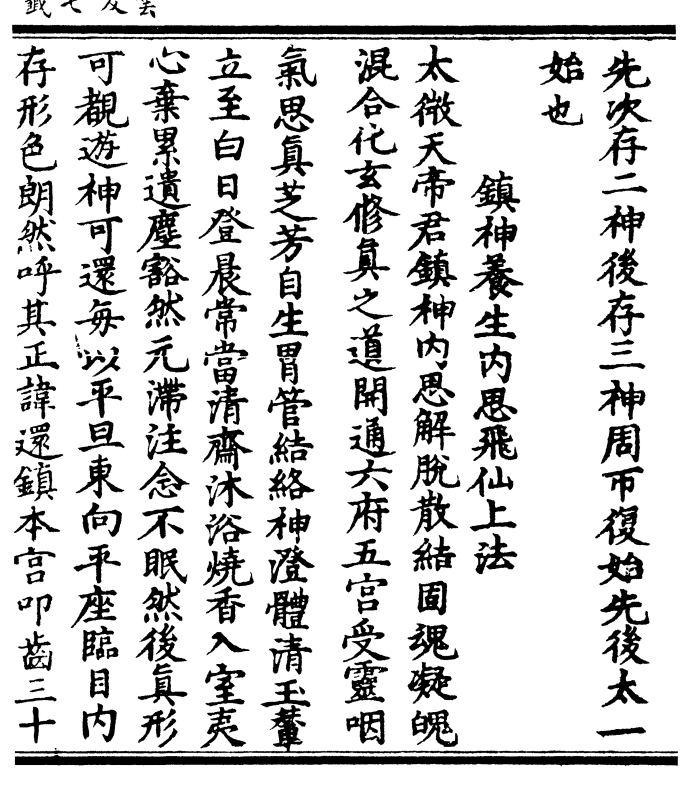 先次存二神後存三神周帀復始先後太一
始也
鎮神養生内思飛仙上法
太微天帝君鎮神内思解脫散結固魂凝魄
混合化玄修眞之道開通六府五宮受靈咽
氣思眞芝芳自生胃管結絡神澄體清玉輦
立至白日登晨常當清齋沐浴燒香入室夷
心棄累遺塵豁然元滯注念不眠然後眞形
可覩遊神可還每以平旦東向平座臨目内
存形色朗然呼其正諱還鎮本宮叩齒三十